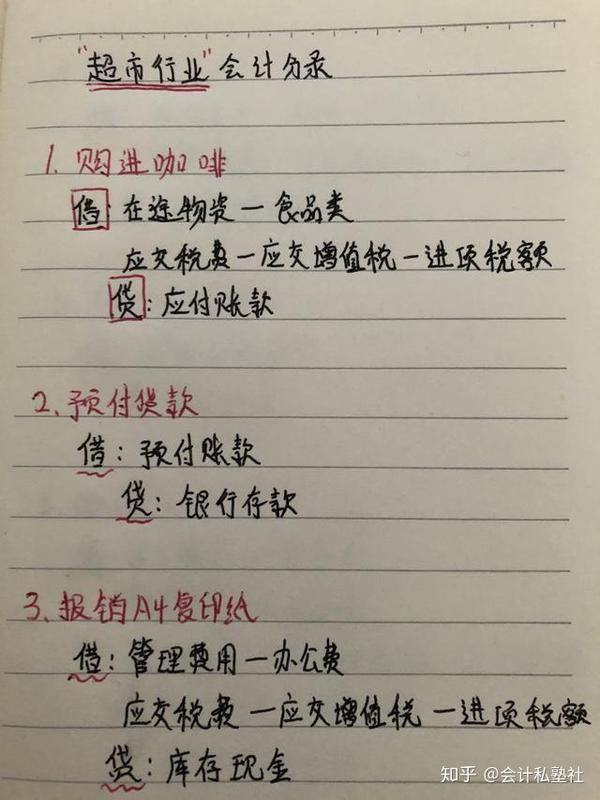 "超市行业"会计分录
1.购进咖啡
借:在途物资—食品类
应交税费—应交增值税—进项税额
贷:应付账款
2.预付货款
借:预付账款
贷:银行存款
3.报销A4复印纸
借:管理费用—办公费
应交税费—应交增值税—进项税额
贷:库存现金
知乎 @会计私塾社